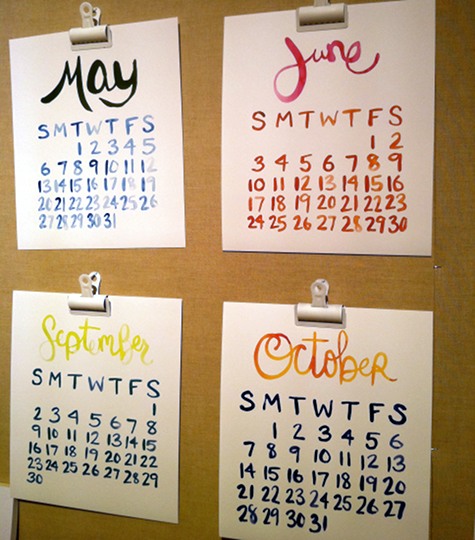 May
S M T W T F S
1 2 3 4 5
6 7 8 9 10 11 12
13 14 15 16 17 18 19
20 21 22 23 24 25 26
27 28 29 30 31
June
S M T W T F S
1 2
3 4 5 6 7 8 9
10 11 12 13 14 15 16
17 18 19 20 21 22 23
24 25 26 27 28 29 30
September
S M T W T F S
1
2 3 4 5 6 7 8
9 10 11 12 13 14 15
16 17 18 19 20 21 22
23 24 25 26 27 28 29
30
October
S M T W T F S
1 2 3 4 5 6
7 8 9 10 11 12 13
14 15 16 17 18 19 20
21 22 23 24 25 26 27
28 29 30 31